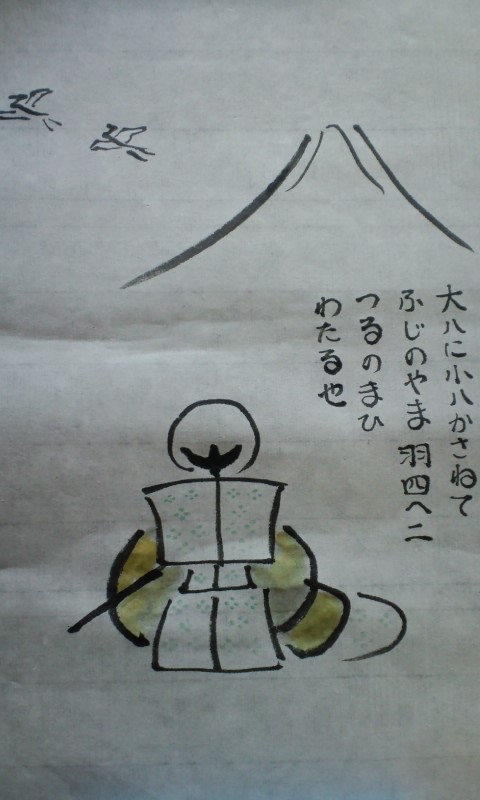 大八に小八かさねて
ふじのやま羽四へ二
つるのまひ
わたる也